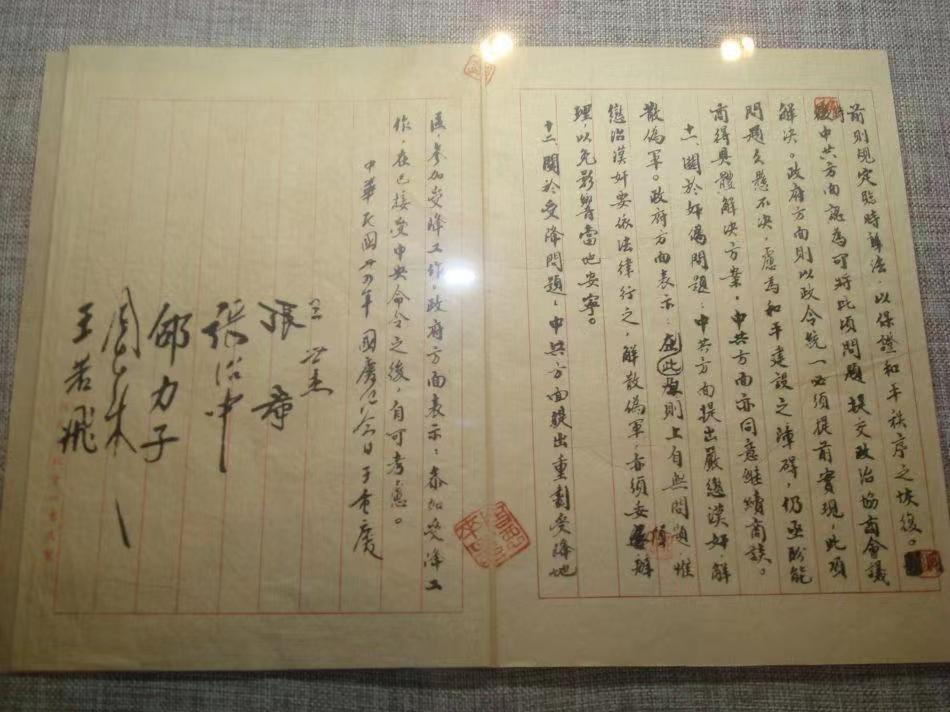 前則規定臨時辦法,以保證和平秩序之恢復。
時中共方面認為可將此項問題提交政治協商會議
解決。政府方面則以政令統一必須提前實現,此項
問題久懸不決,慮為和平建設之障碍,仍亟盼能
商得具體解决方案。中共方面亦同意繼續商談。
十一、關於奸偽問題:中共方面提出嚴懲漢奸,解
散偽軍。政府方面表示:此原則上自無問題,惟
懲治漢奸要依法律行之,解散偽軍,亦須妥慎辦
理,以免影響當地安寧。
十二、關於受降問題:中共方面提出重劃受降地
區,參加受降工作,政府方面表示:參加受降工
作,在已接受中央命令之後,自可考慮。
中華民國卅四年國慶紀念日于重慶
王世杰
張羣
張治中
邵力子
周恩來
王若飛